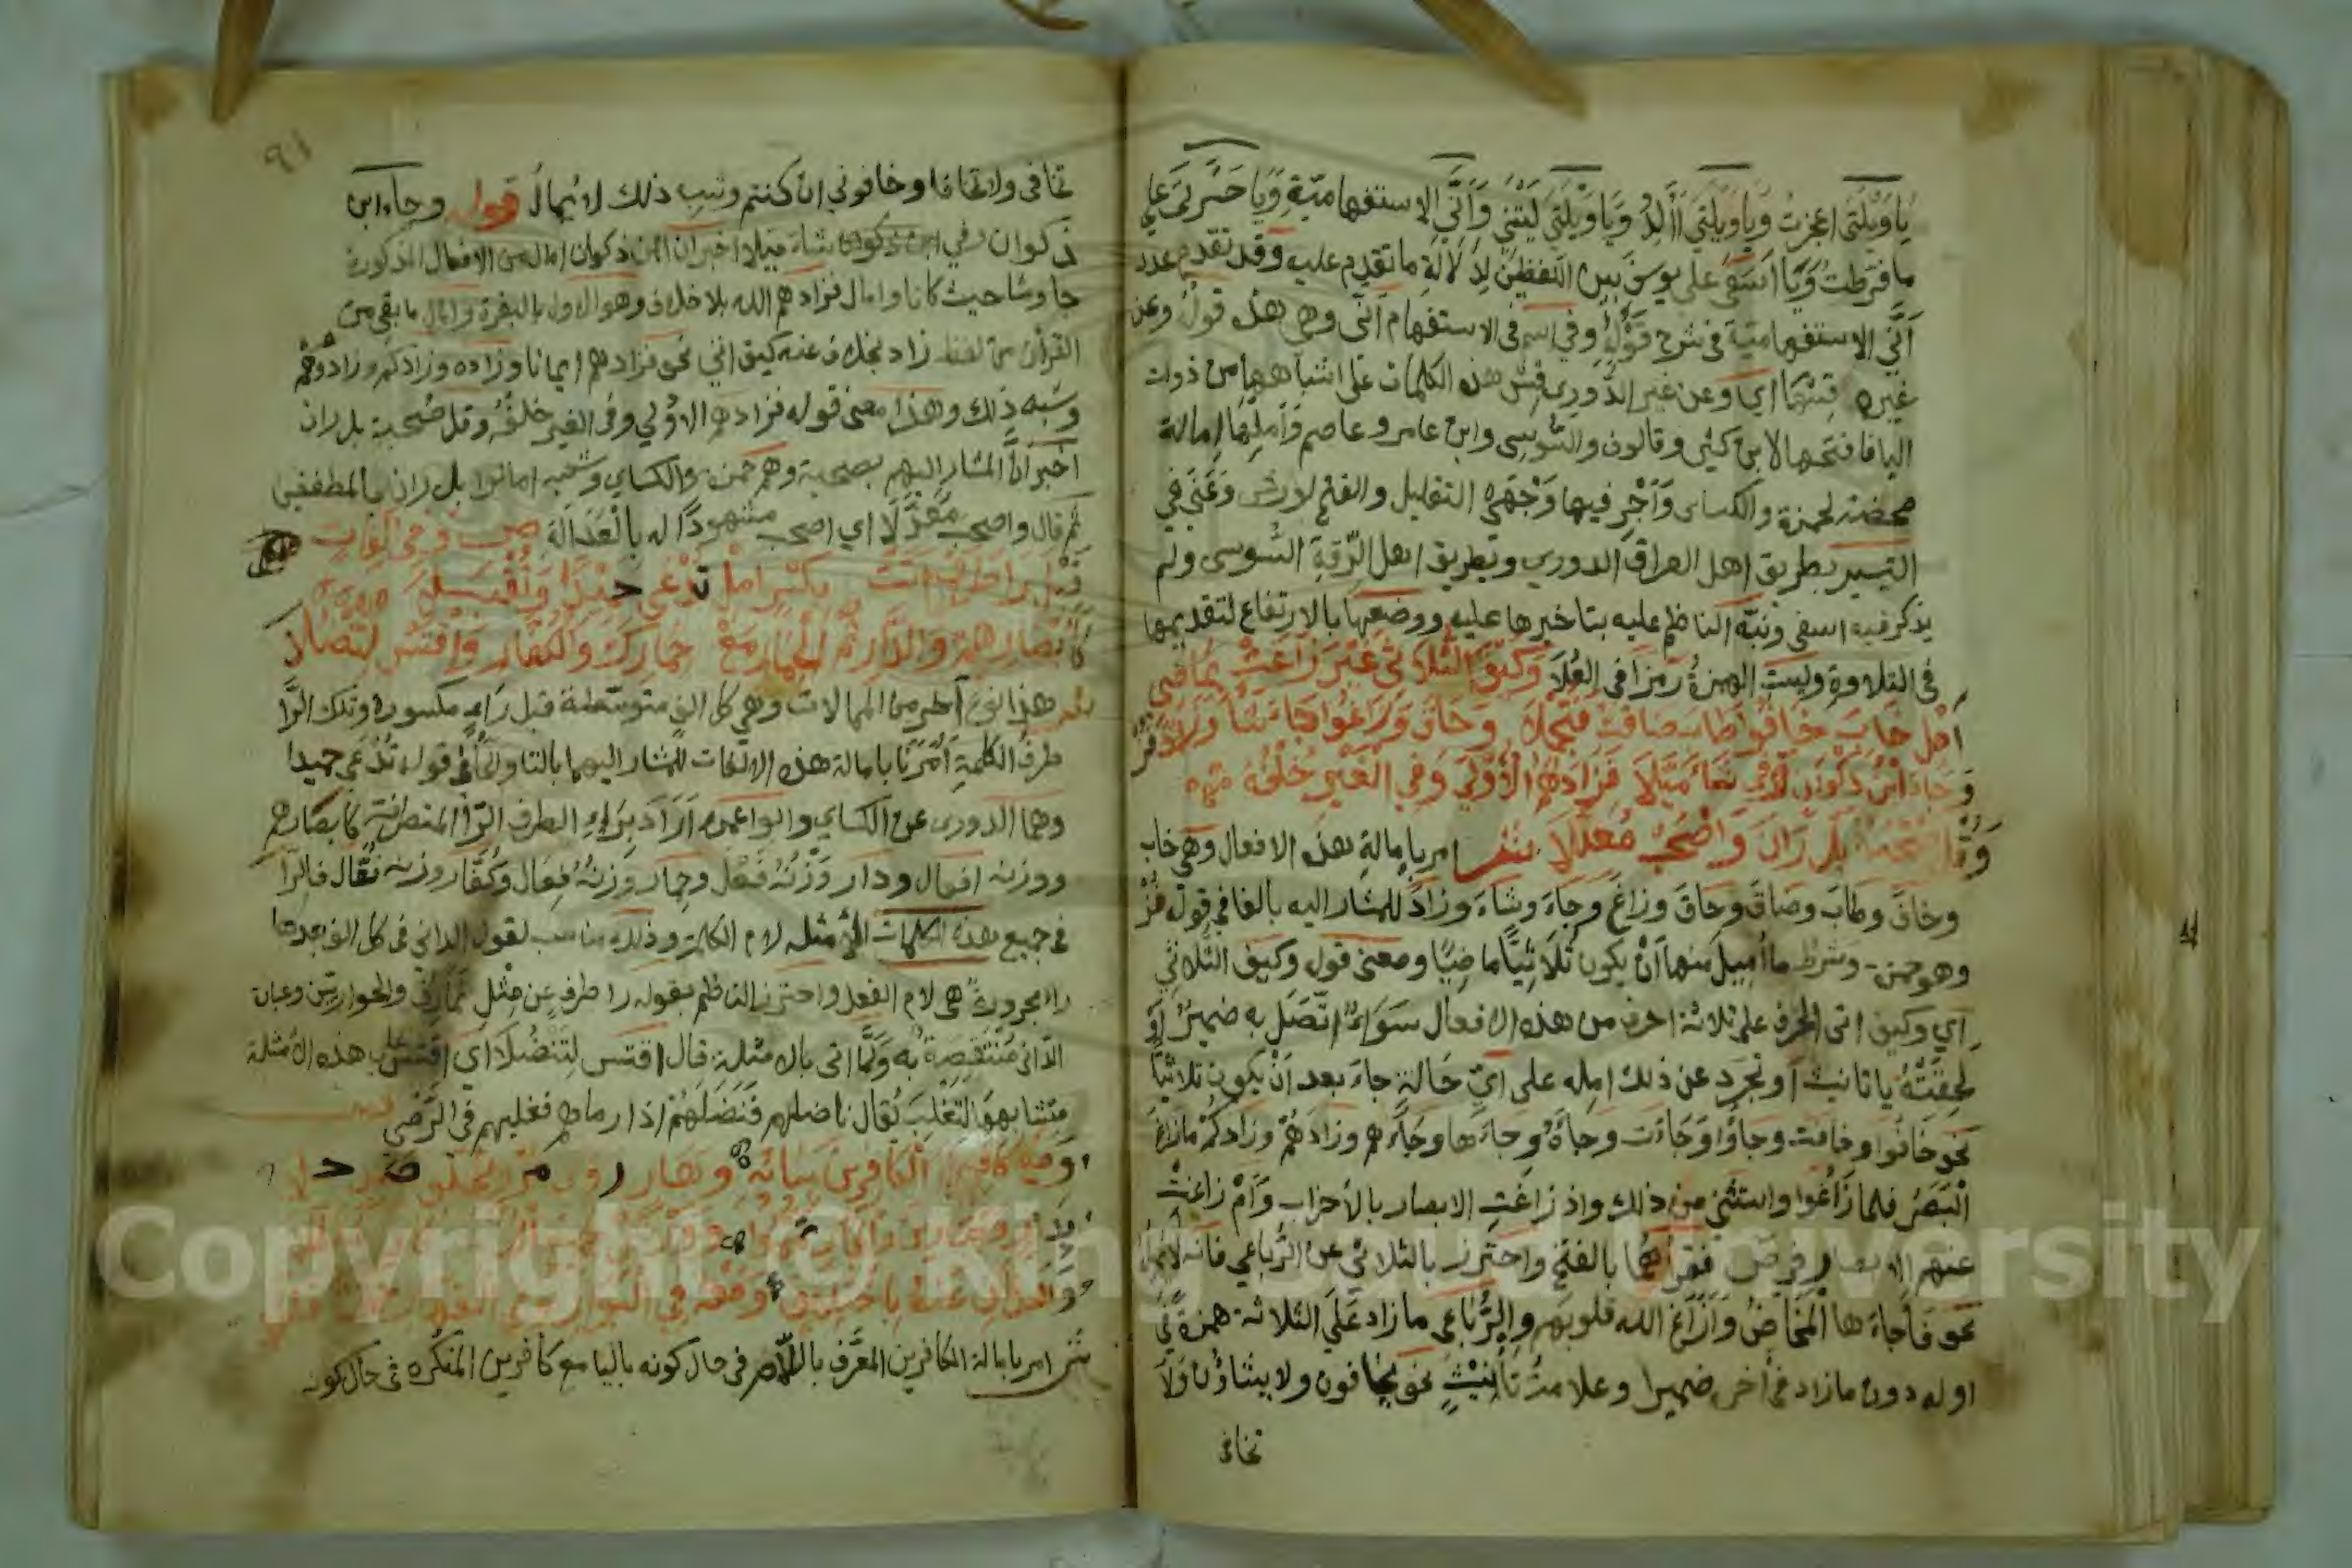 يَا وَيْلَتَى اعجزتُ وَيا وَيلتى أألِدُ وَيَا وَيْلَتى لَيْتَنِي وَأَنَّى الاستفهاميّةِ وَيا حَسْرتَى على
ما فَرّطتُ وَيَا اسَفَى على يوسف بين اللفظين لِدلالةِ ما تقدم عليه وقد تقدم عدد
أَنَّى الاستفهاميّة في شرح قَوْلِهِ وفي اسم في الاستفهام أنّى وهي هذه قولهُ وعن
غيره قِسْهَا اي وعن غير الدُّوري قِسْ هذه الكلمات على اشباهها من ذوات
اليا فافتحها لابن كثير وقالون والسُّوسِى وابن عامر وعاصم وَأَمِلْهَا إمالة
محضة لحمزة والكساى وَأَجْرِ فيها وَجْهَىِ التقليل والفتح لورش وَعُنِيَ في
التيسير بطريق اهل العراق الدوري وبطريق اهل الرّقةِ السُّوسى ولم
يذكر فيه اسفى ونبَّه الناظم عليه بتاخيرها عليه ووضعها بالارتفاع لتقديمها
في التلاوةِ وليستِ الهمزةُ رمزا في العُلاَ وَكَيْفَ الثُّلاَثِي غَيْرَ زَاغَتْ بِمَاضِي
أَمِلْ خَابَ خَافُوا طَابَ ضَاقَتْ فَتُجْمِلاَ وَحَاقَ وَزَاغُوا جَاءَ شَاءَ وَزَادَ فُزْ
وَجَاءَ ابْنُ ذَكْوَانٍ وَفِي شَاءَ مَيَّلاَ فَزَادَهُمُ الْأُولَى وَفِي الْغَيْرِ خُلْفُهُ
وَقُلْ صُحْبَةٌ بَلْ رَانَ وَاصْحَبْ مُعَدَّلاَ امر بإمالةِ هذه الافعال وهي خاب
وخاف وطابَ وضاقَ وحَاقَ وزاغَ وجاءَ وشاءَ وزادَ للمشار اليه بالفا في قوله فُزْ
وهو حمزة وشرط ما أميلَ منها أَنْ يكونَ ثُلَاثِيًّا ماضِيًا ومعنى قوله وكيف الثلاثي
اي وكيف اتى الحرف على ثلاثة احرف من هذه الافعال سَوَاءٌ اتّصَلَ به ضميرٌ أو
لحِقَتْهُ تا تانيث أو تجرّد عن ذلك امِله على ايّ حَالةٍ جاءَ بعد اَنْ يكون ثلاثيا
نحو خَافُوا وخافت وجاؤُا وَجَاءَت وجاءَهُ وجاءَها وجَاءَهم وزادَهُمْ وزادكُمْ ما زاغ
الْبَصَرُ فلما زَاغُوا واستثنى من ذلك واذ زاغَتِ الابصار بالأحزاب وَأَمْ زاغت
عنهم الابصار في صۤ فقرأهما بالفتح واحترز بالثلاثي عن الرُّباعي فانه لا يميله
نحو فأجاءَها الْمَخَاضُ وَأَزَاغ الله قلوبَهم والرُّبَاعى ما زاد عَلَى الثلاثة همزةً في
اوله دون ما زاد في أخره ضميرا وعلامتُ تأنيثٍ نحو يَخافون ولا يشاؤُن وَلاَ
تخافى
٩١
تخافى ولا تخافا وخافونِي ان كنتم وشبه ذلك لا يُمالُ قوله وجاء ابن
ذكوان وفي شاء ميلا اخبر ان ابن ذكوان امال من الافعال المذكورة
جا وشا حيث كانا وامال فزادهم الله بلا خلاف وهو الاول بالبقرة وامال ما بقي من
القرأن من لفظ زاد بخلاف عنه كيف اتى نحو فزادهم ايمانا وزاده وزادكم وزادوهم
وشبه ذلك وهذا معنى قوله فزادهم الاُولى وفى الغير خلفُهُ وقل صُحبة بل ران
اخبر انَّ المشار اليهم بصحبة وهم حمزه والكساى وشعبه امالوا بل ران بالمطففين
ثم قال واصحب مُعَدَّلًا اي اصحب مشهودًا له بالْعَدَالَة ص وَفِي أَلِفَاتٍ
قَبْلَ رَا طَرَفٍ أَتَتْ بِكَسْرٍ أَمِلْ تُدْعَى حَمِيدًا وَتُقْبَلاَ
كَأَبْصَارِهِمْ وَالدَّارِ ثُمَّ الْحِمَارِ مَعْ حِمَارِكَ وَالْكُفَّارِ وَاقْتَسْ لِتَنْضُلاَ
هذا نوع آخر من الممالات وهي كل الفٍ متوسّطة قبل رَاءٍ مكسورة وتلك الرّا
طرفُ الكلمةِ أَمَرَنَا بامالة هذه الالفات للمشار اليهما بالتا والحا في قوله تُدْعَى حميدا
وهما الدورى عن الكساي وابو اعمرو اَرَادَ بِرَاءِ الطرفِ الرّا المتطرفة كابصارهم
ووزنه افعال ودار وَزْنُهُ فَعَلْ وحِمار وَزنهُ فِعَال وكُفَّار وزنه فُعَّال فالرّا
في جميع هذه الكلمات المُمثلهِ لام الكلمة وذلك مناسب لقول الدانى فى كل الف بعدها
را مجرورة هى لام الفعل واحترز الناظم بقوله را طرفٍ عن مِثْلِ نُمَارِقُ والحواريّين وعبارة
الدّانى مُنْتَقِصَةٌ به وَلَمَّا اتى بالامثلة قال اقتس لِتَنْضُلَا اي اقتس على هذه الأمثلة
مِثْشابهها لِتَغْلِبَ يُقال ناضلهم فَنَضَلَهُمْ اذا رماهم فغلبهم في الرَّمْي
وَمَعْ كَافِرِينَ الْكَافِرِينَ بِيَائِهِ وَهَارٍ رَوى مُرْوٍ بِخُلْفٍ صَدٍ حَلاَ
شَ امر بامالة الكافرين المعرَّف باللام في حال كونه باليا مع كافرين المنكّره في حال كونه